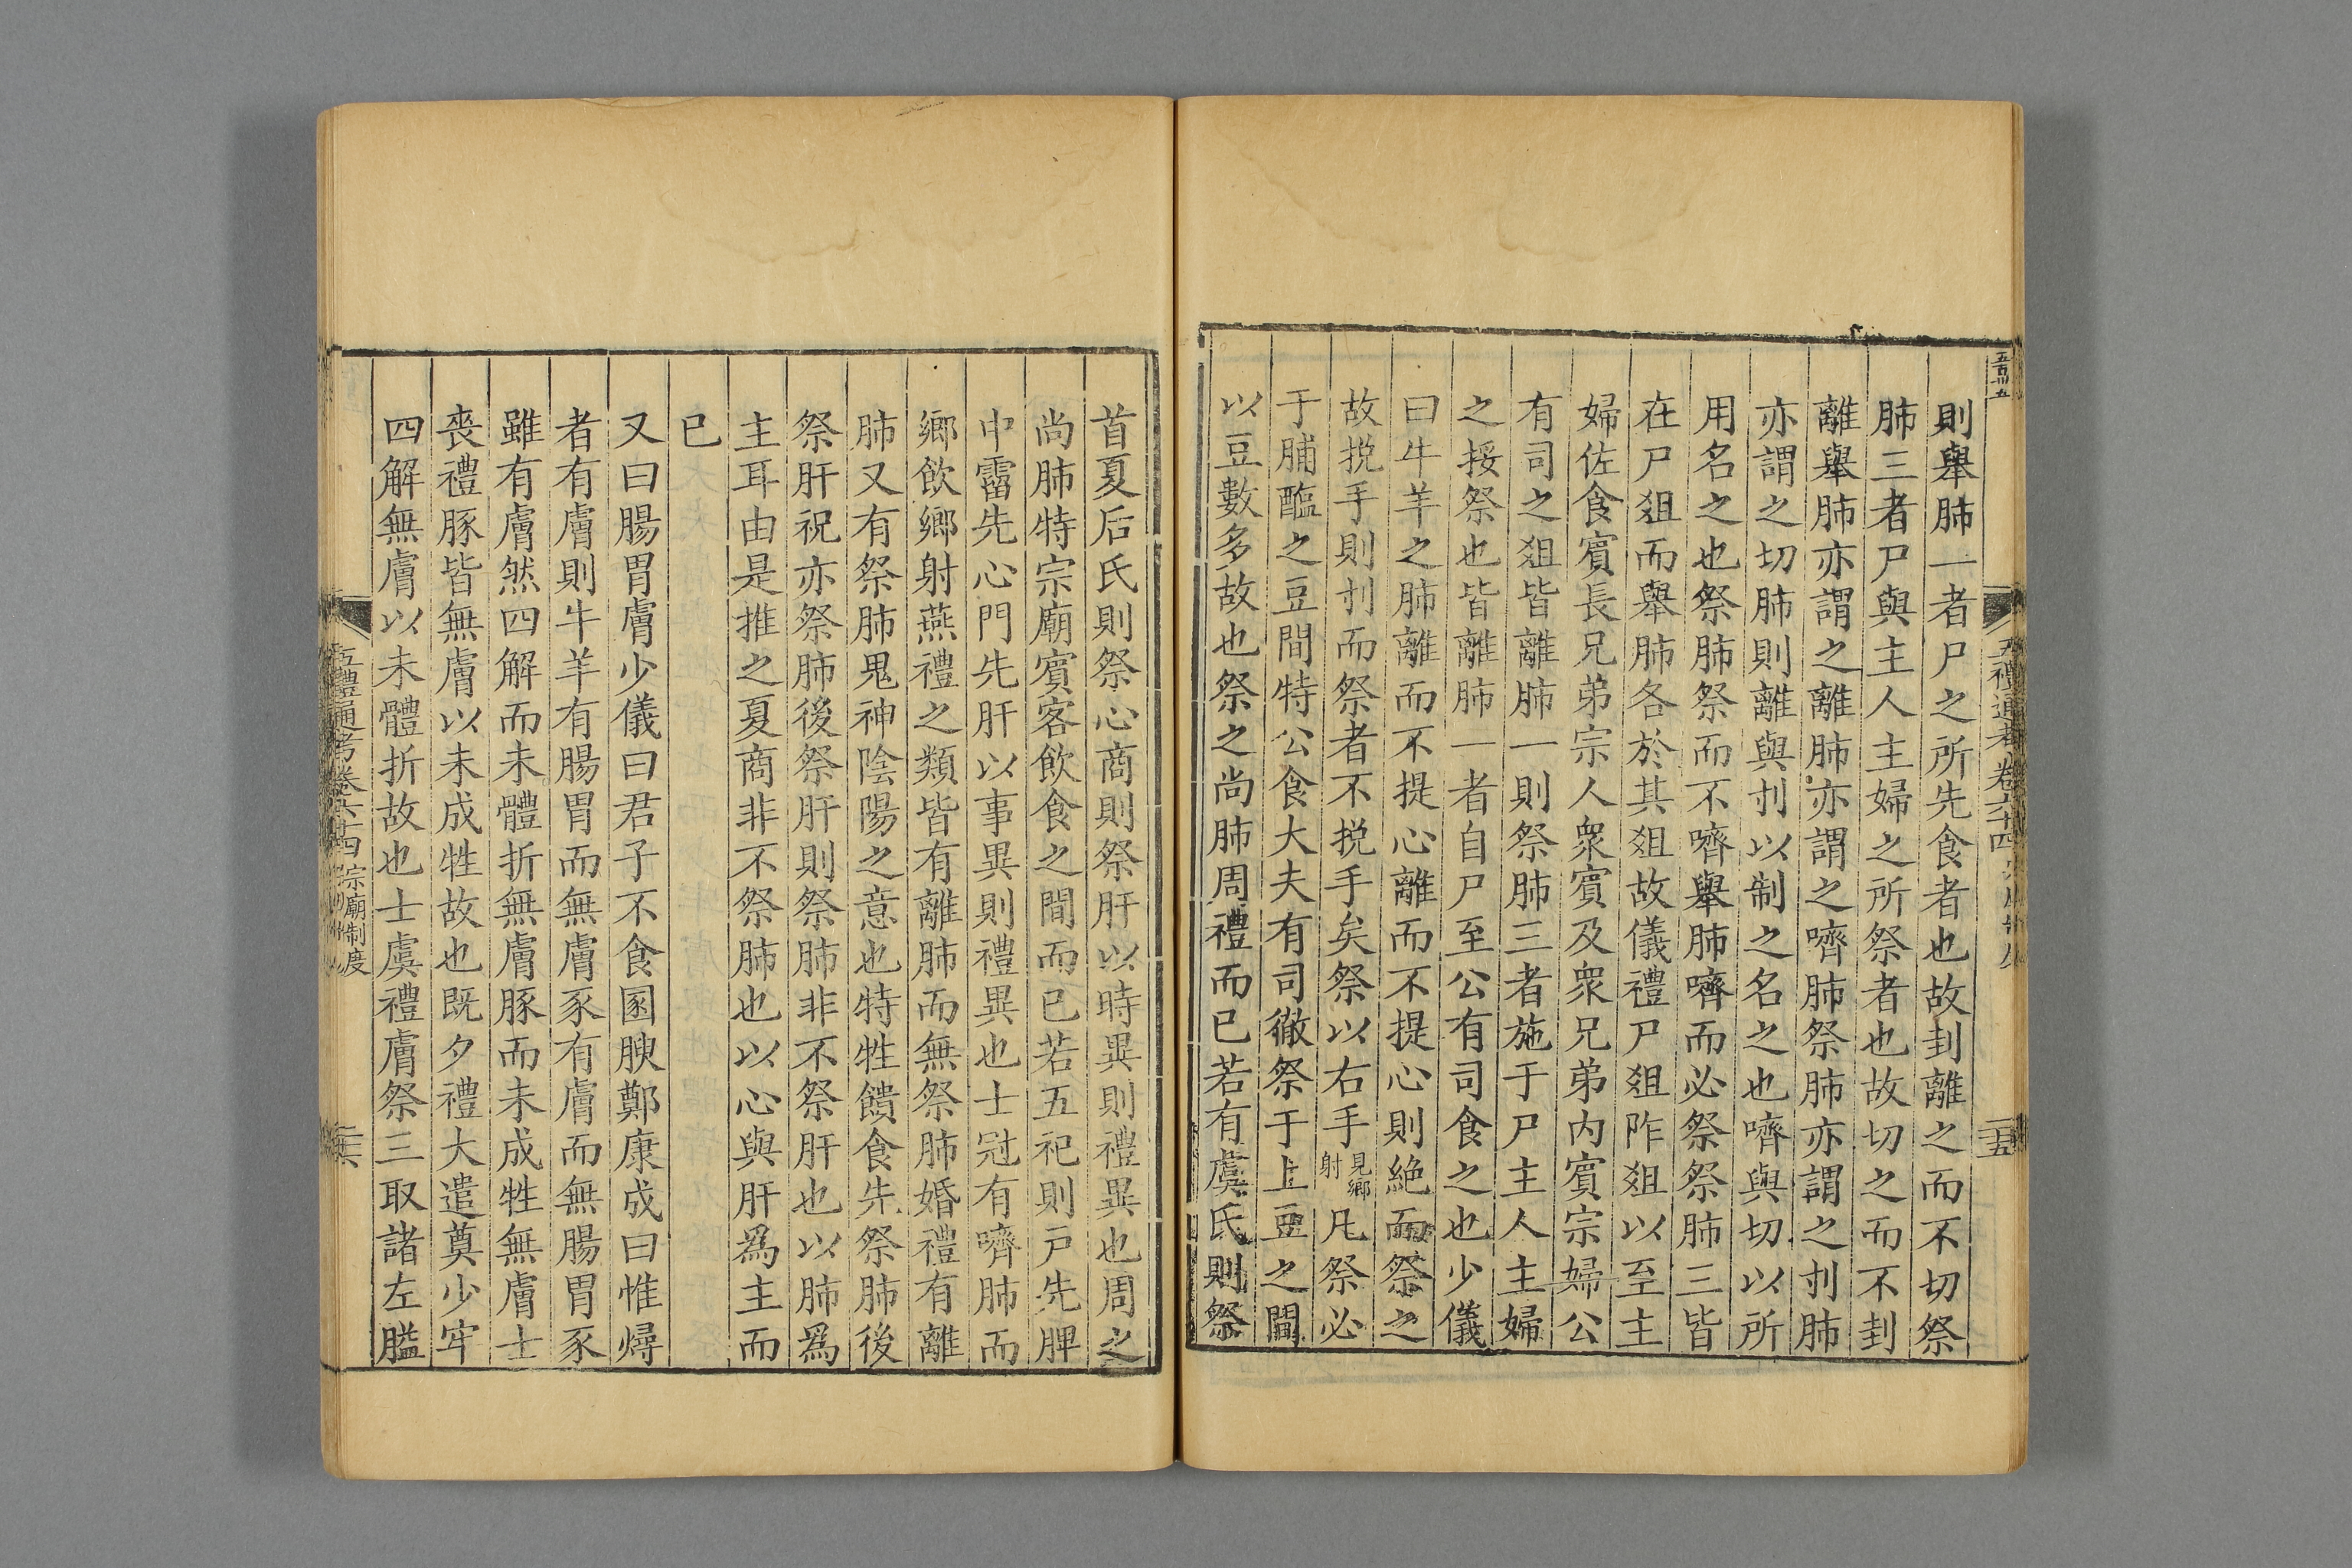 則舉肺一者尸之所先食者也故刲離之而不切祭
肺三者尸與主人主婦之所祭者也故切之而不刲
離舉肺亦謂之離肺亦謂之嚌肺祭肺亦謂之刌肺
亦謂之切肺則離與刌以制之名之也嚌與切以所
用名之也祭肺祭而不嚌舉肺嚌而必祭祭肺三皆
在尸爼而舉肺各於其爼故儀禮尸爼阼爼以至主
婦佐食賓長兄弟宗人衆賓及衆兄弟内賓宗婦公
有司之爼皆離肺一則祭肺三者施于尸主人主婦
之挼祭也皆離肺一者自尸至公有司食之也少儀
曰牛羊之肺離而不提心離而不提心則絶而祭之
故挩手則刌而祭者不挩手矣祭以右手見鄉射凡祭必
于脯醢之豆間特公食大夫有司徹祭于上豆之間
以豆數多故也祭之尚肺周禮而已若有虞氏則祭
首夏后氏則祭心商則祭肝以時異則禮異也周之
尚肺特宗廟賓客飲食之間而已若五祀則戸先脾
中霤先心門先肝以事異則禮異也士冠有嚌肺而
鄉飲鄉射燕禮之類皆有離肺而無祭肺婚禮有離
肺又有祭肺鬼神陰陽之意也特牲饋食先祭肺後
祭肝祝亦祭肺後祭肝則祭肺非不祭肝也以肺爲
主耳由是推之夏商非不祭肺也以心與肝爲主而
已
又曰腸胃膚少儀曰君子不食圂腴鄭康成曰惟燖
者有膚則牛羊有腸胃而無膚豕有膚而無腸胃豕
雖有膚然四解而未體折無膚豚而未成牲無膚士
喪禮豚皆無膚以未成牲故也既夕禮大遣奠少牢
四解無膚以未體折故也士虞禮膚祭三取諸左膉
五禮通考卷六十四 宗廟制度
二六